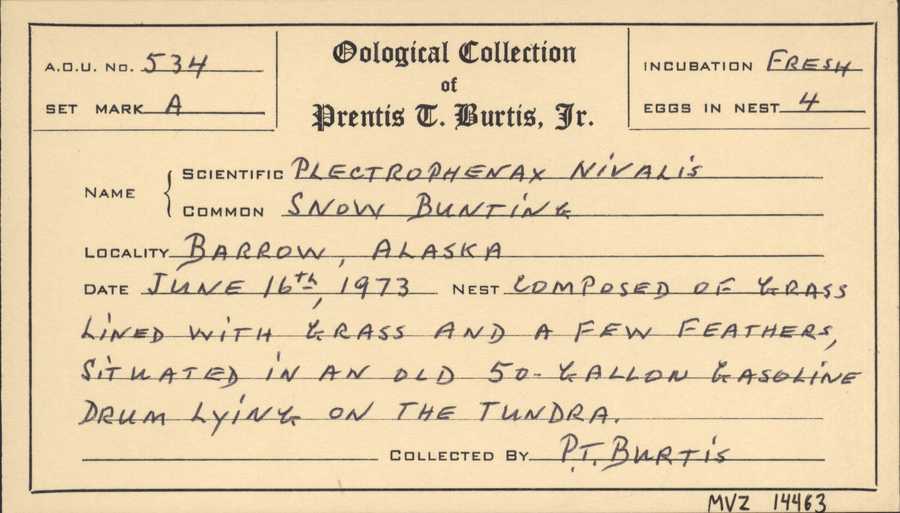 A.O.U. No. 534
SET MARK A
Oological Collection
of
Prentis T. Burtis, Jr.
INCUBATION FRESH
EGGS IN NEST 4
NAME
SCIENTIFIC PLECTROPHENAX NIVALIS
COMMON SNOW BUNTING
LOCALITY BARROW, ALASKA
DATE JUNE 16th, 1973 NEST COMPOSED OF GRASS
LINED WITH GRASS AND A FEW FEATHERS,
SITUATED IN AN OLD 50-GALLON GASOLINE
DRUM LYING ON THE TUNDRA.
COLLECTED BY P.T. BURTIS
MVZ 14463